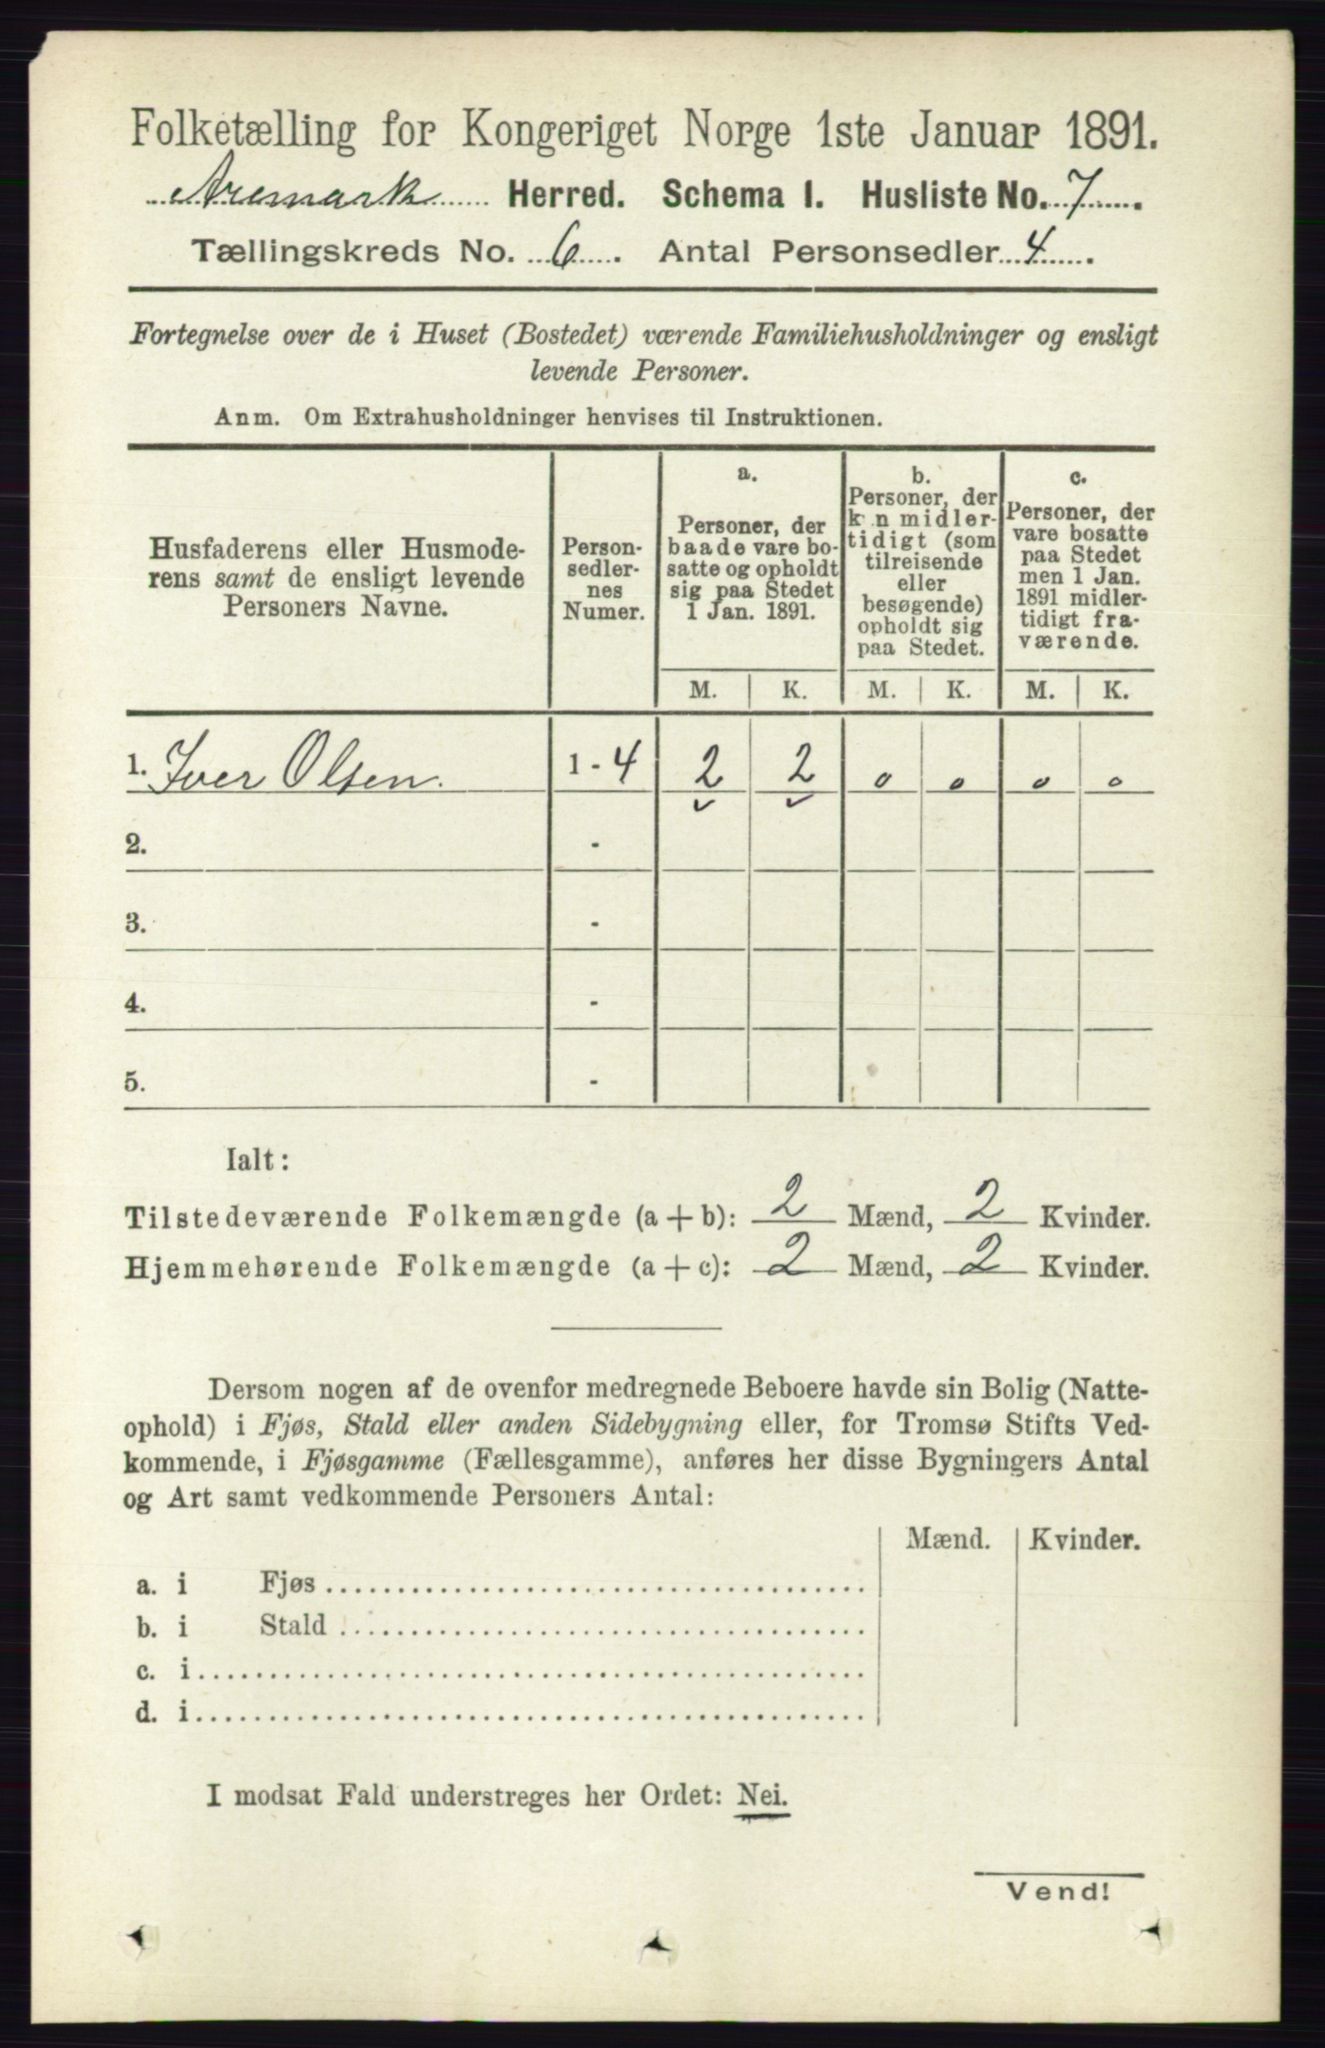 Folketælling for Kongeriget Norge 1ste Januar 1891.
Aremark Herred. Schema I. Husliste No. 7
Tællingskreds No. 6. Antal Personsedler 4.
Fortegnelse over de i Huset (Bostedet) værende Familiehusholdninger og ensligt
levende Personer.
Anm. Om Extrahusholdninger henvises til Instruktionen.
Husfaderens eller Husmode-
rens samt de ensligt levende
Personers Navne.
Person-
sedler-
nes
Numer.
a.
Personer, der
baade vare bo-
satte og opholdt
sig paa Stedet
1 Jan. 1891.
b.
Personer, der
kun midler-
tidigt (som
tilreisende
eller
besøgende)
opholdt sig
paa Stedet.
c.
Personer, der
vare bosatte
paa Stedet
men 1 Jan.
1891 midler-
tidigt fra-
værende.
M. K. M. K. M. K.
1. Iver Olsen. 1 - 4 2 2 0 0 0 0
2. -
3. -
4. -
5. -
Ialt:
Tilstedeværende Folkemængde (a + b): 2 Mænd, 2 Kvinder.
Hjemmehørende Folkemængde (a + c): 2 Mænd, 2 Kvinder.
Dersom nogen af de ovenfor medregnede Beboere havde sin Bolig (Natte-
ophold) i Fjøs, Stald eller anden Sidebygning eller, for Tromsø Stifts Ved-
kommende, i Fjøsgamme (Fællesgamme), anføres her disse Bygningers Antal
og Art samt vedkommende Personers Antal:
Mænd. Kvinder.
a. i Fjøs
b. i Stald
c. i
d. i
I modsat Fald understreges her Ordet: Nei.
Vend!